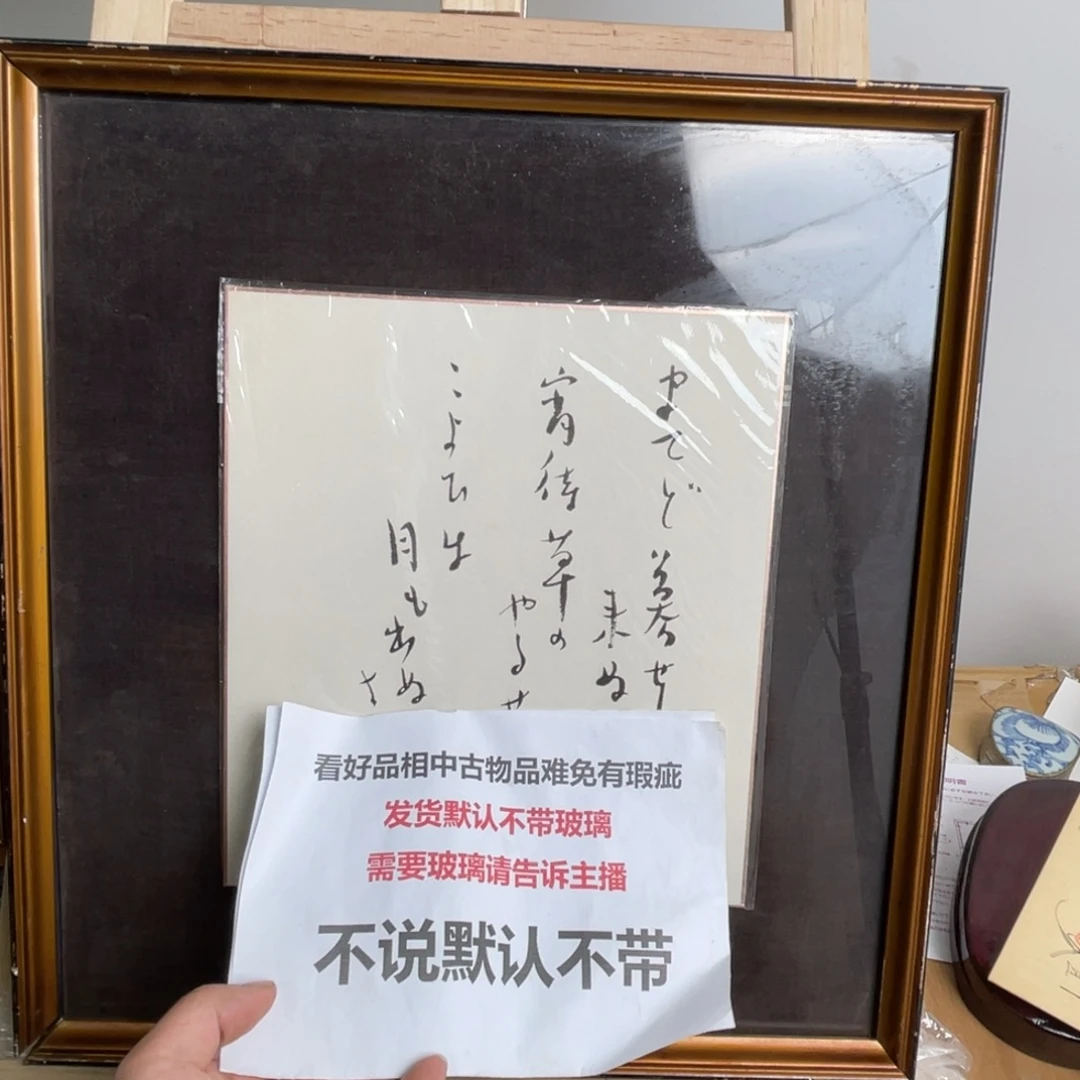 まてど暮せ
来ぬ
宵待草の
やるせ
こよひは
月も出ぬ
さ
看好品相中古物品难免有瑕疵
发货默认不带玻璃
需要玻璃请告诉主播
不说默认不带